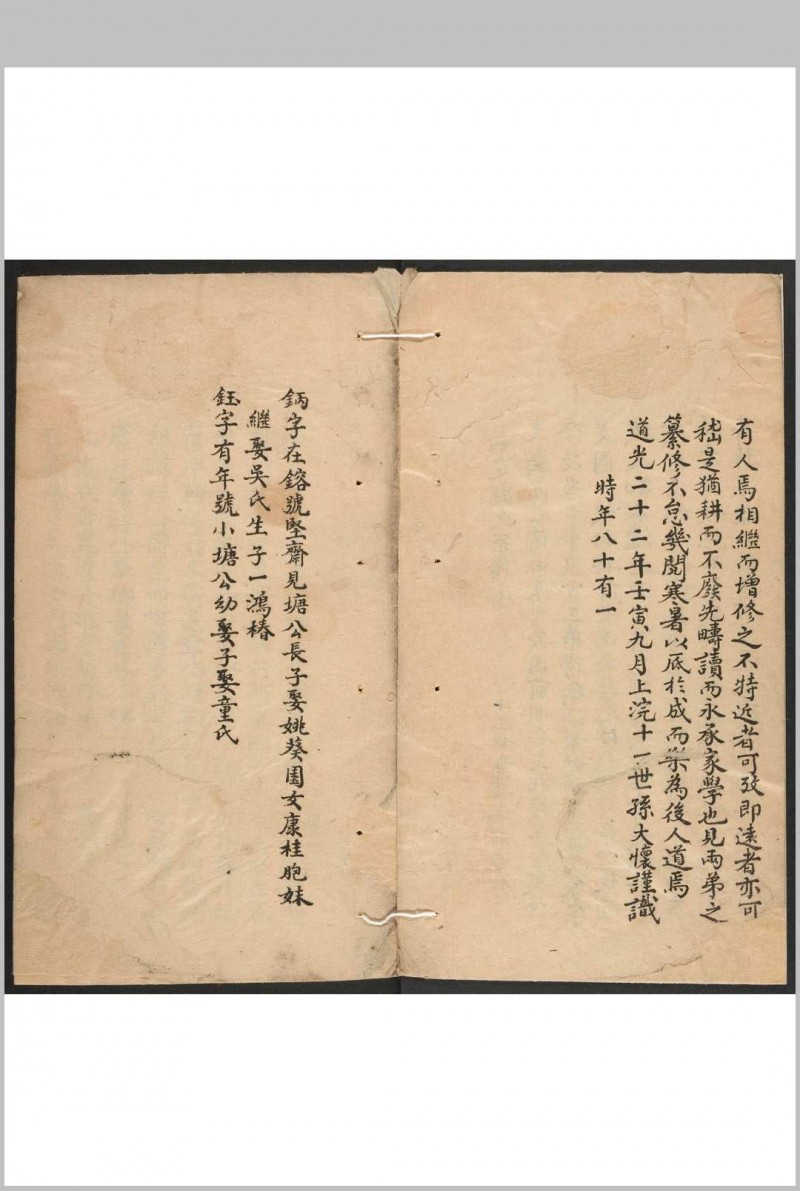 有人焉相繼而增修之不特近者可攷即遠者亦可
嵇是猶耕而不廢先疇讀而永承家學也見兩弟之
纂修不怠幾閱寒暑以底於成而樂為後人道焉
道光二十二年壬寅九月上浣十一世孫大懷謹識
時年八十有一
鈵字在鎔號堅齋見塘公長子娶姚葵園女康桂胞妹
繼娶吳氏生子一鴻椿
鈺字有年號小塘公幼娶子娶童氏